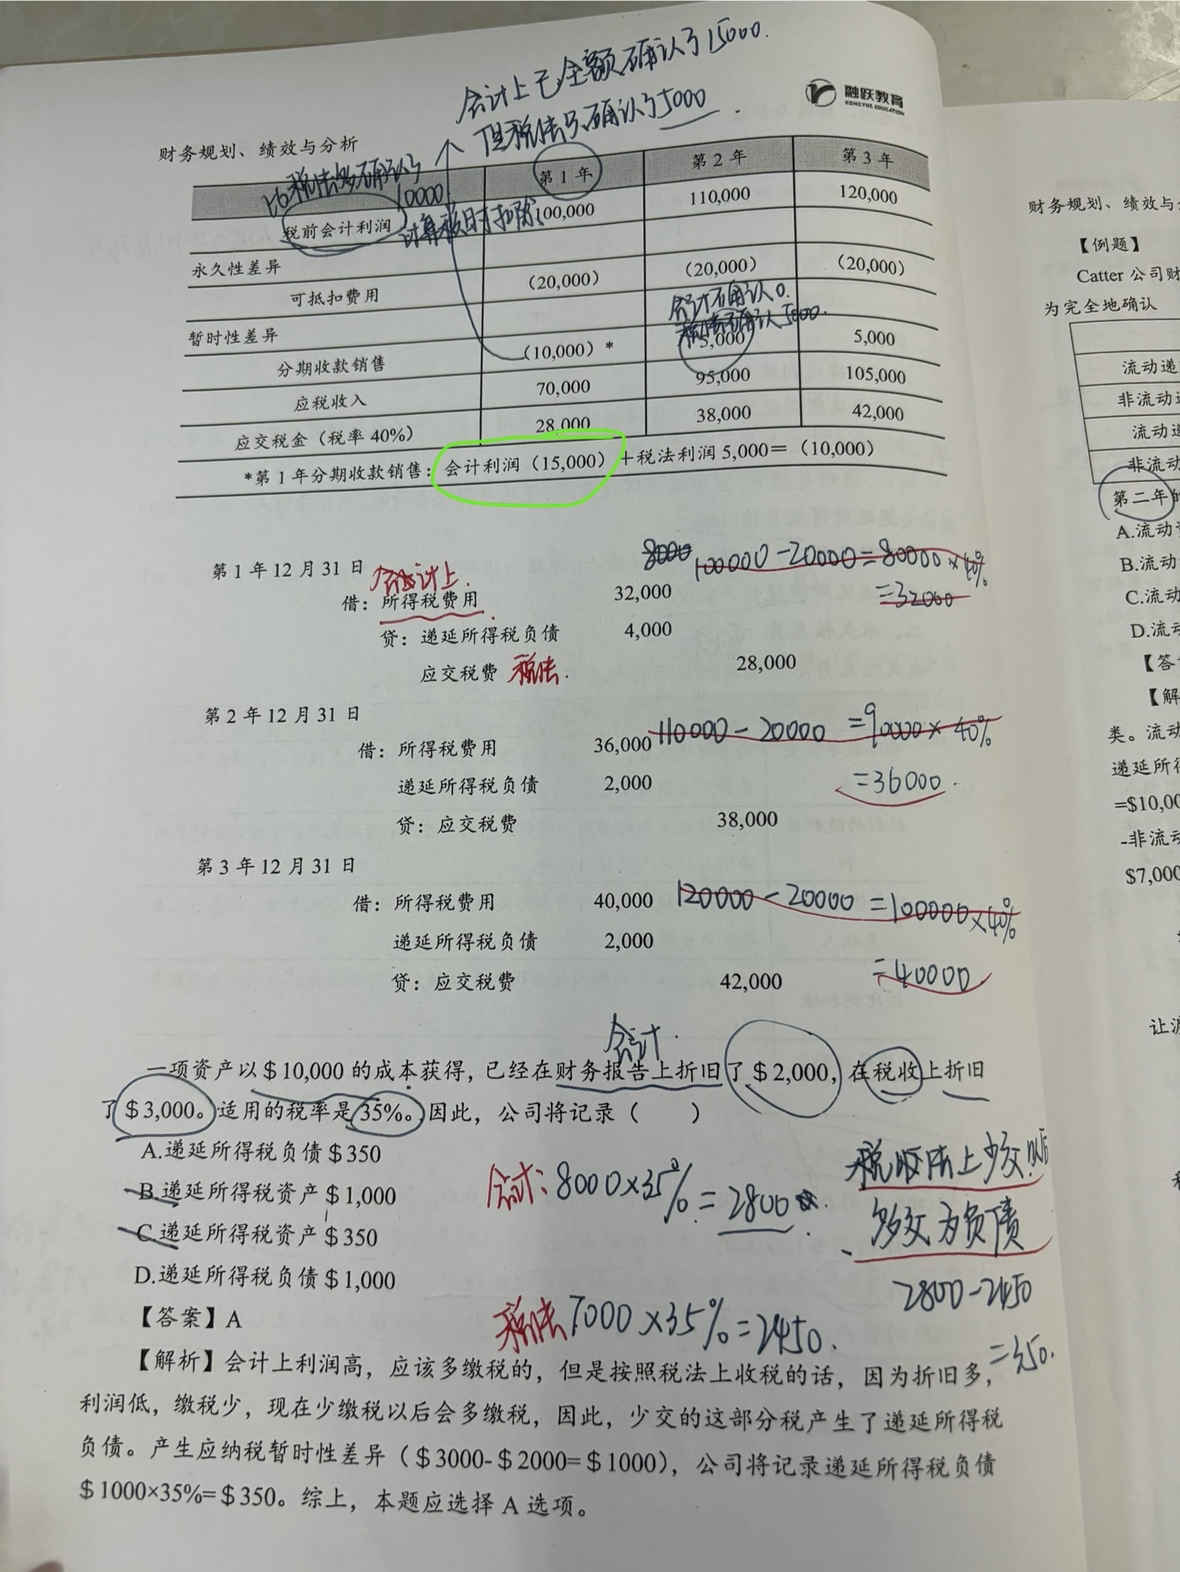 会计上已全额确认了15000.
但税法只确认了5000.
融跃教育
RONGYUE EDUCATION
财务规划、绩效与分析
比税法多确认了
10000
计算税时扣除
第1年 第2年 第3年
税前会计利润 100,000 110,000 120,000
永久性差异
可抵扣费用 (20,000) (20,000) (20,000)
会计确认0.
税法确认5000.
暂时性差异
分期收款销售 (10,000)* 5,000 5,000
应税收入 70,000 95,000 105,000
应交税金(税率40%) 28,000 38,000 42,000
*第1年分期收款销售:会计利润(15,000)+税法利润5,000=(10,000)
8000 100000-20000=80000×40%
=32000
第1年12月31日
会计上.
借:所得税费用 32,000
贷:递延所得税负债 4,000
应交税费 税法. 28,000
第2年12月31日
借:所得税费用 36,000 110000-20000=90000×40%
=36000.
递延所得税负债 2,000
贷:应交税费 38,000
第3年12月31日
借:所得税费用 40,000 120000-20000=100000×40%
=40000
递延所得税负债 2,000
贷:应交税费 42,000
会计.
一项资产以$10,000的成本获得,已经在财务报告上折旧了$2,000,在税收上折旧
了$3,000。适用的税率是35%。因此,公司将记录( )
A.递延所得税负债$350
B.递延所得税资产$1,000
C.递延所得税资产$350
D.递延所得税负债$1,000
会计:8000×35%=2800
税收法上少交以后
多交为负债
2800-2450
=350.
税法7000×35%=2450.
【答案】A
【解析】会计上利润高,应该多缴税的,但是按照税法上收税的话,因为折旧多,
利润低,缴税少,现在少缴税以后会多缴税,因此,少交的这部分税产生了递延所得税
负债。产生应纳税暂时性差异($3000-$2000=$1000),公司将记录递延所得税负债
$1000×35%=$350。综上,本题应选择A选项。
财务规划、绩效与
【例题】
Catter公司财
为完全地确认
流动递
非流动
流动递
非流动
第二年的
A.流动
B.流动
C.流动
D.流动
【答
【解
类。流动
递延所得
=$10,00
-非流动
$7,000
让渡